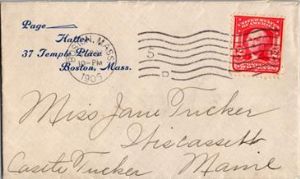 Page
Hatter
37 Temple Place
Boston, Mass.
MASS.
10-PM
1905
5
D
Miss Jane Tucker
Wiscassett
Castle Tucker Maine